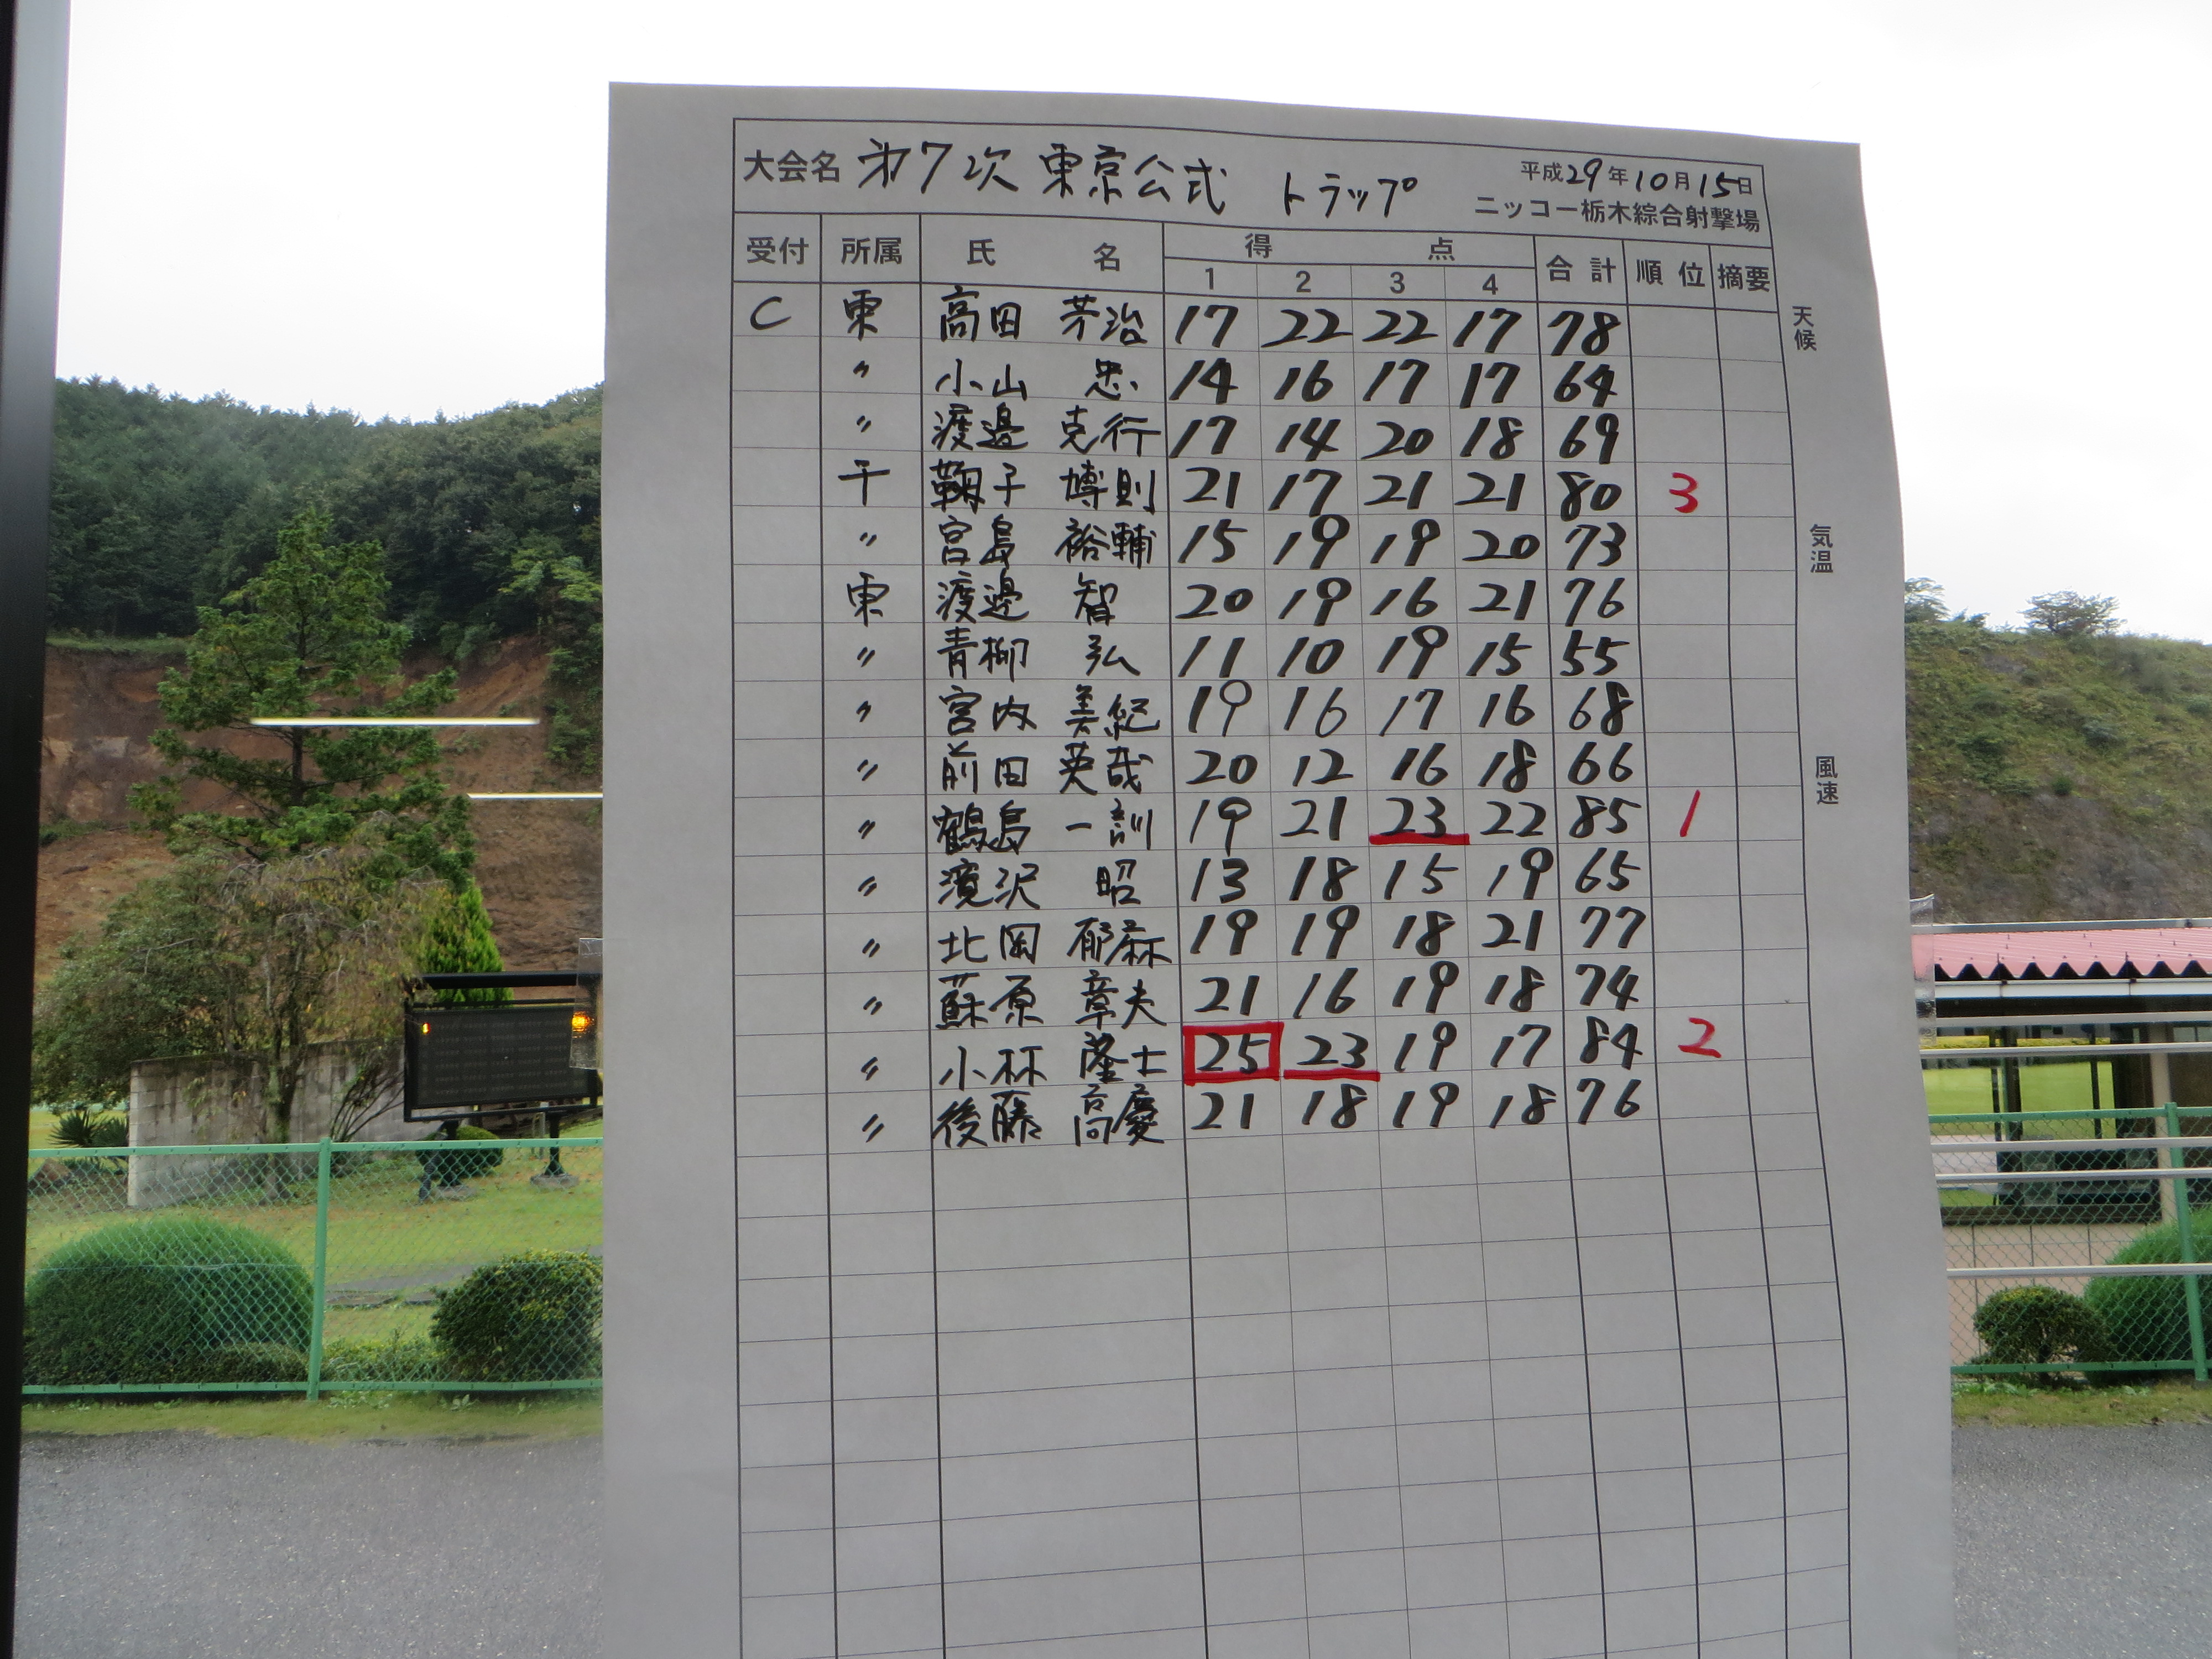 大会名 第7次 東京公式 トラップ 平成29年10月15日
ニッコー栃木綜合射撃場
受付 所属 氏名 得点 合計 順位 摘要
1 2 3 4
C 東 高田 芳治 17 22 22 17 78
〃 小山 忠 14 16 17 17 64
〃 渡邉 克行 17 14 20 18 69
千 鞠子 博則 21 17 21 21 80 3
〃 宮島 裕輔 15 19 19 20 73
東 渡邉 智 20 19 16 21 76
〃 青柳 弘 11 10 19 15 55
〃 宮内 美紀 19 16 17 16 68
〃 前田 英哉 20 12 16 18 66
〃 鶴島 一訓 19 21 23 22 85 1
〃 濱沢 昭 13 18 15 19 65
〃 北岡 郁麻 19 19 18 21 77
〃 蘇原 章夫 21 16 19 18 74
〃 小林 隆士 25 23 19 17 84 2
〃 後藤 高慶 21 18 19 18 76
天候
気温
風速